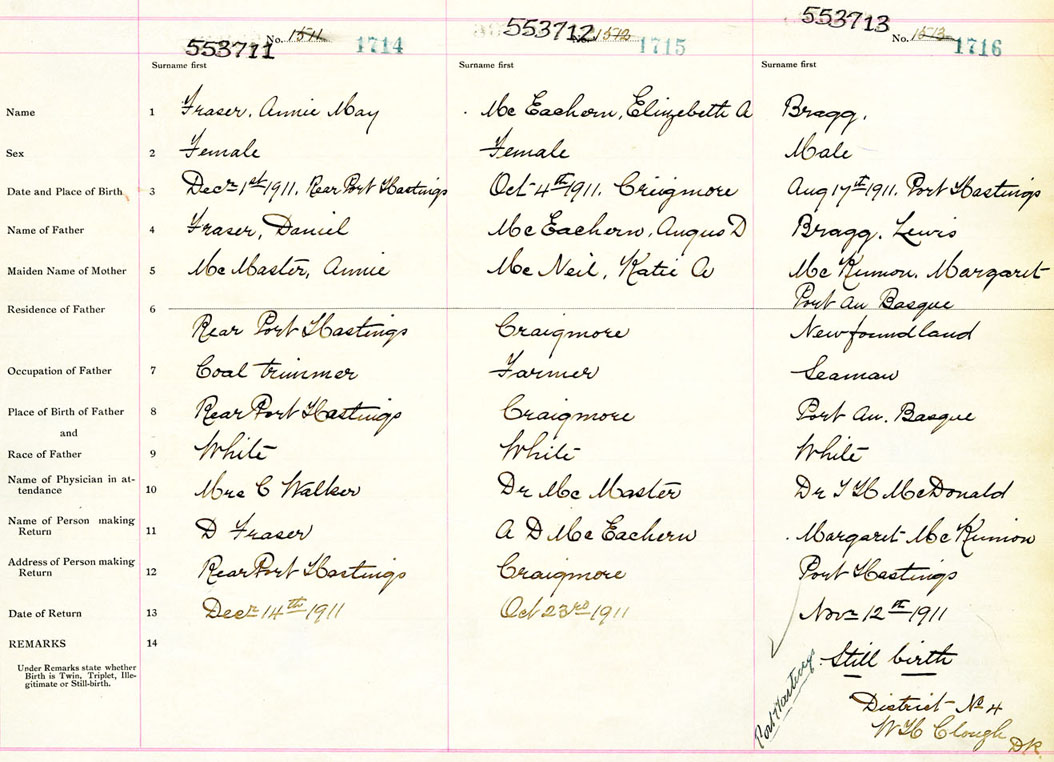 553711 No. 1511 1714
553712 No. 1512 1715
553713 No. 1513 1716
Surname first Surname first Surname first
Name 1 Fraser, Annie May Mc Eachern, Elizebeth A Bragg,
Sex 2 Female Female Male
Date and Place of Birth 3 Decr 1st 1911, Rear Port Hastings Oct 4th 1911, Craigmore Aug 17th 1911, Port Hastings
Name of Father 4 Fraser, Daniel Mc Eachern, Angus D Bragg, Lewis
Maiden Name of Mother 5 Mc Master, Annie Mc Neil, Katie A Mc Kinnon, Margaret
Port Au Basque
Residence of Father 6
Rear Port Hastings Craigmore Newfoundland
Occupation of Father 7 Coal trimmer Farmer Seaman
Place of Birth of Father 8 Rear Port Hastings Craigmore Port Au. Basque
and
Race of Father 9 White White White
Name of Physician in at-
tendance 10 Mrs C Walker Dr Mc Master Dr McDonald
Name of Person making
Return 11 D Fraser A D Mc Eachern Margaret Mc Kinnon
Address of Person making
Return 12 Rear Port Hastings Craigmore Port Hastings
Date of Return 13 Decr 14th 1911 Oct 23rd 1911 Novr 12th 1911
REMARKS 14
Still birth
Under Remarks state whether
Birth is Twin, Triplet, Ille-
gitimate or Still-birth.
Port Hastings
District No 4
W H Clough
DR